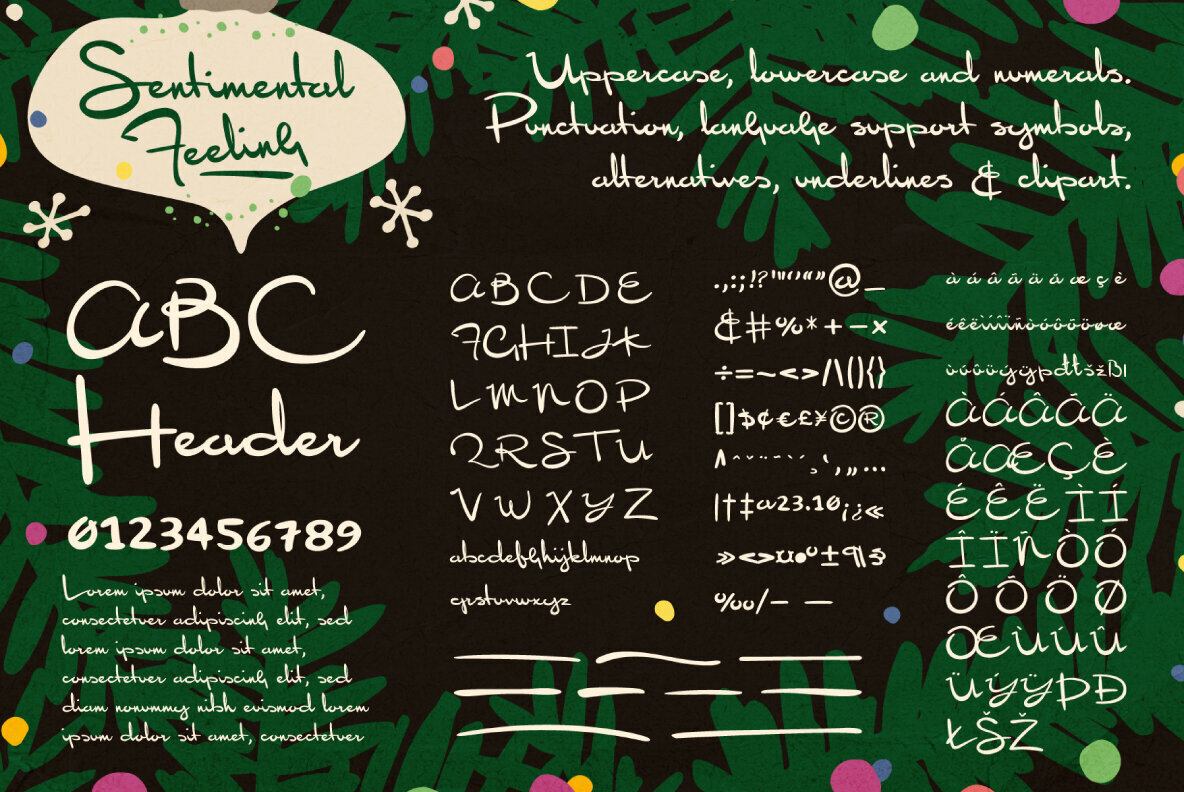 Sentimental
Feeling
Uppercase, lowercase and numerals.
Punctuation, language support symbols,
alternatives, underlines & clipart.
ABC
Header
0123456789
Lorem ipsum dolor sit amet,
consectetuer adipiscing elit, sed
lorem ipsum dolor sit amet,
consectetuer adipiscing elit, sed
diam nonummy nibh euismod lorem
ipsum dolor sit amet, consectetuer
ABCDE
FGHIJK
LMNOP
QRSTU
VWXYZ
abcdefghijklmnop
qrstuvwxyz
.,:;!?"'“”‘’@_
&#%*+−×
÷=~<>/\(){}
[]$¢€£¥©®
|†‡a23.10¡¿«
»<>¤•º±¶§
‰/– —
àáâãäåæçè
éêëìíîïñòóôõöøœ
ùúûüýÿpđłšžBI
ÀÁÂÃÄ
ÅÆÇÈ
ÉÊËÌÍ
ÎÏÑÒÓ
ÔÕÖØ
ŒÙÚÛ
ÜÝŸÞĐ
ŁŠŽ